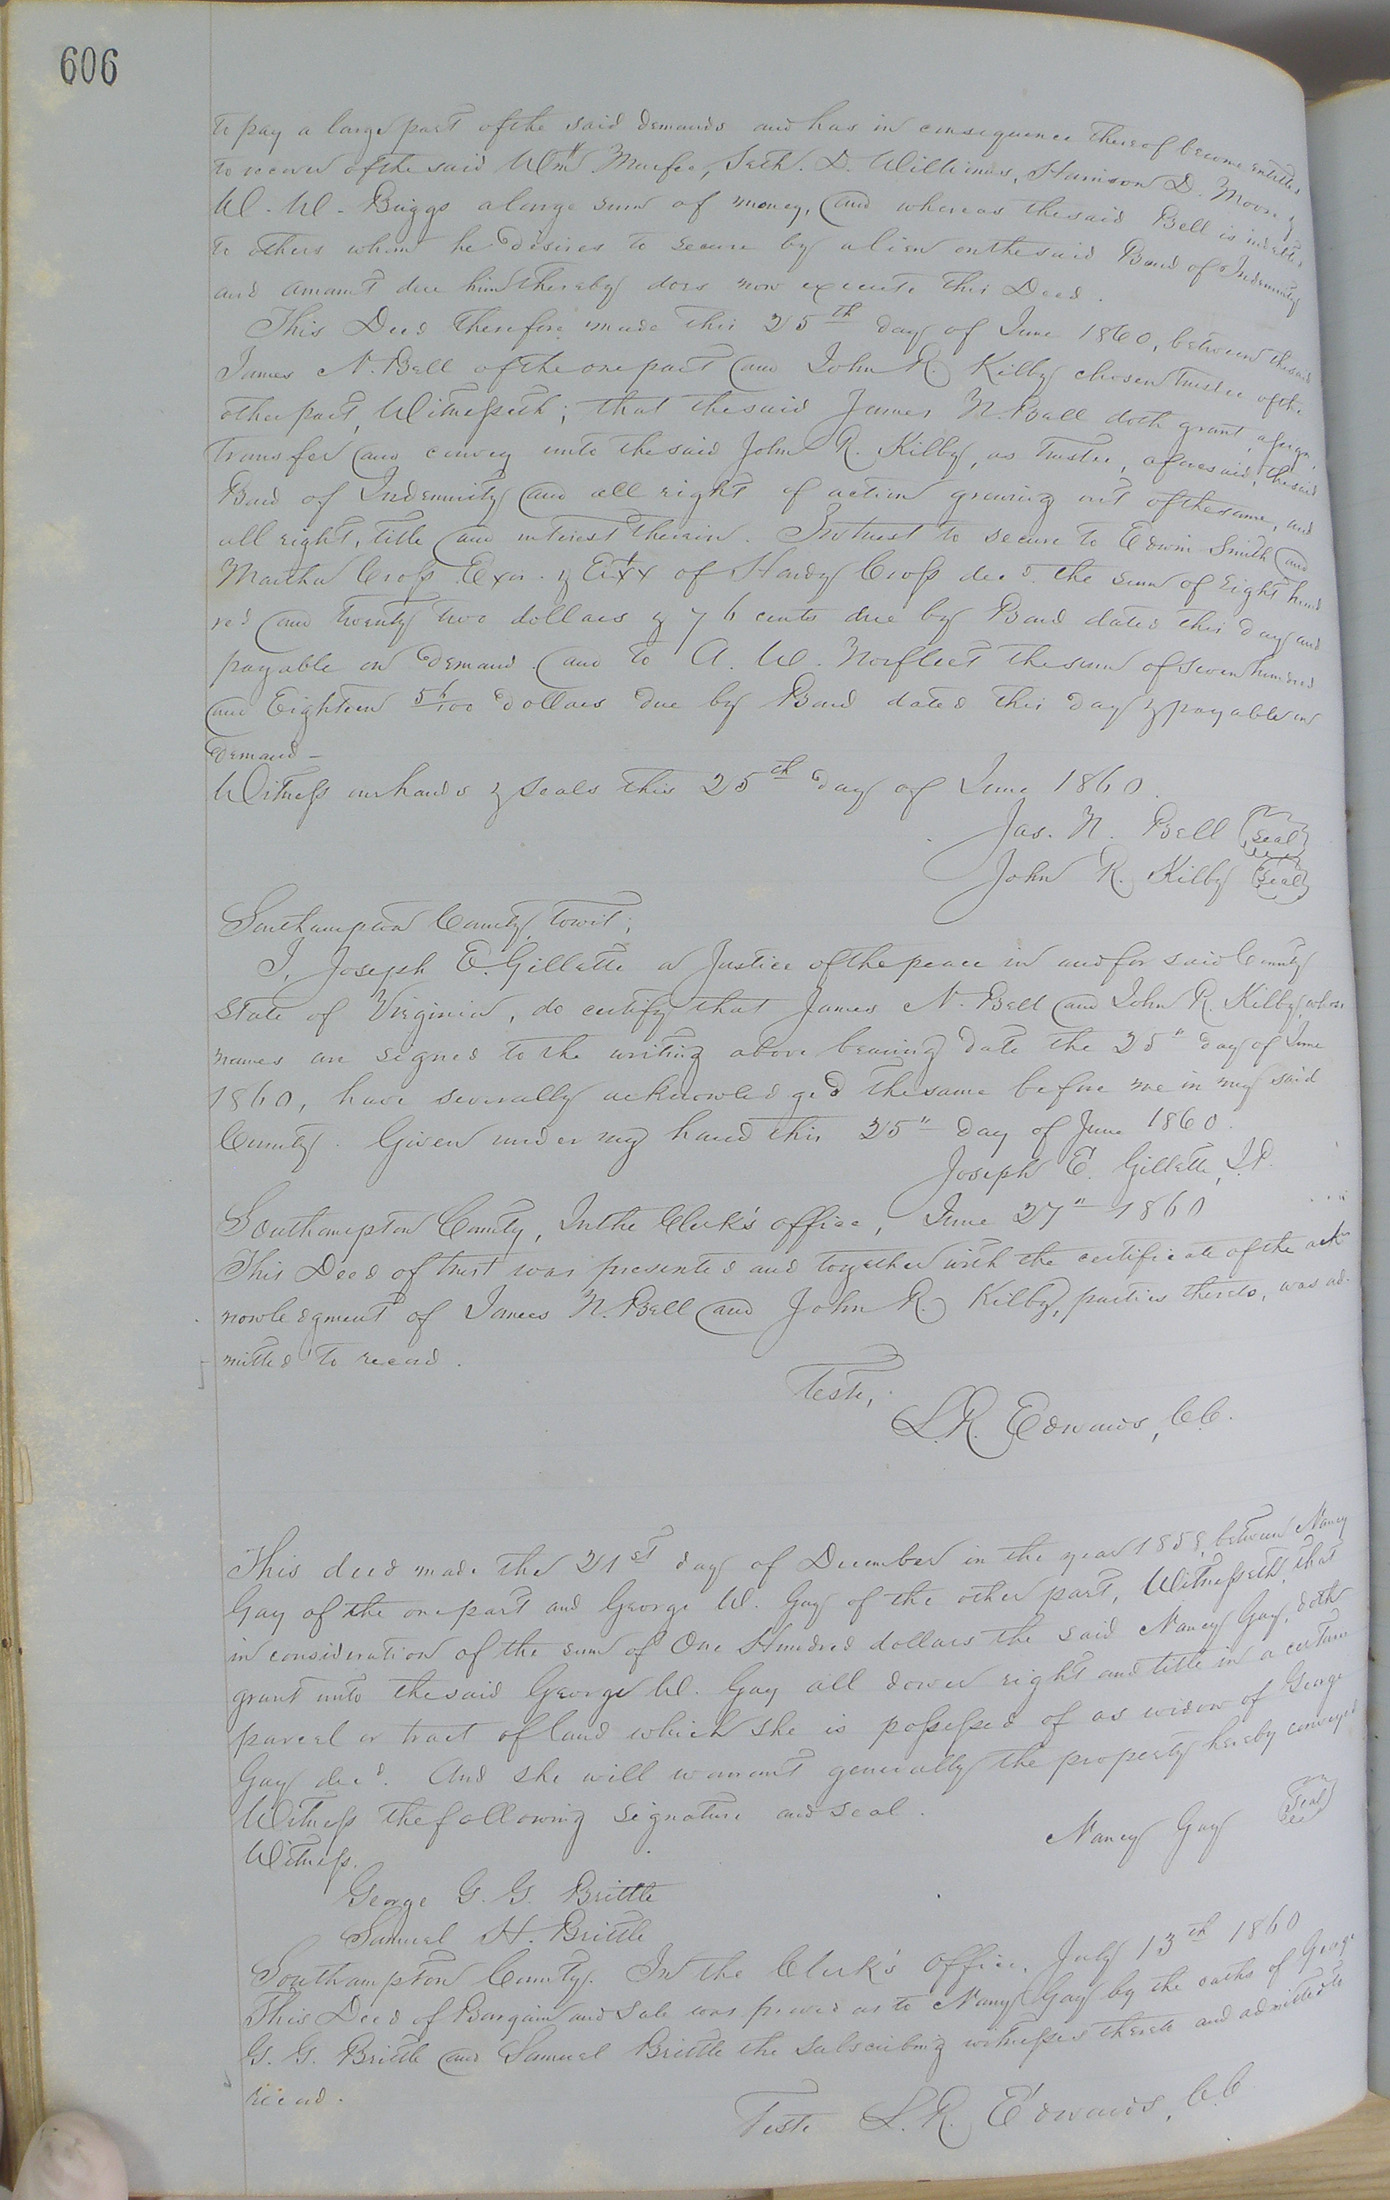 606
to pay a large part of the said demands and has in consequence thereof become entitled
to recover of the said Wm H Murfee, Seth. D. Williams, Harrison D. Moore &
W. W. Briggs a large sum of money, and whereas the said Bell is indebted
to others whom he desires to secure by a lien on the said Bond of Indemnity
and amount due him thereby does now execute this Deed.
This Deed therefore made this 25th day of June 1860, between the said
James N. Bell of the one part and John R. Kilby chosen Trustee of the
other part, Witnesseth; that the said James N. Bell doth grant, assign,
transfer and convey unto the said John R. Kilby, as Trustee, aforesaid, the said
Bond of Indemnity and all right of action growing out of the same, and
all right, title and interest therein. In trust to secure to Edwin Smith and
Martha Cross Exor. & Extx of Hardy Cross decd. the sum of Eight hund
red and twenty two dollars & 76 cents due by Bond dated this day and
payable on demand. and to A. W. Norfleet the sum of seven hundred
and Eighteen 56/100 dollars due by Bond dated this day & payable on
demand –
Witness our hands & seals this 25th day of June 1860.
Jas. N. Bell (seal)
John R. Kilby (seal)
Southampton County, towit;
I, Joseph E. Gillette a Justice of the peace in and for said County
State of Virginia, do certify that James N. Bell and John R. Kilby, whose
names are signed to the writing above bearing date the 25" day of June
1860, have severally acknowledged the same before me in my said
County. Given under my hand this 25" day of June 1860.
Joseph E. Gillette, J.P.
Southampton County, In the Clerk's office, June 27" 1860
This Deed of trust was presented and together with the certificate of the ack-
nowledgment of James N. Bell and John R. Kilby, parties thereto, was ad-
mitted to record.
Teste,
L. R. Edwards, C.C.
This deed made the 21st day of December in the year 1858, between Nancy
Gay of the one part and George W. Gay of the other part, Witnesseth, that
in consideration of the sum of One Hundred dollars the said Nancy Gay, doth
grant unto the said George W. Gay all dower right and title in a certain
parcel or tract of land which she is possessed of as widow of George
Gay decd. And she will warrant generally the property hereby conveyed
Witness the following signature and seal.
Nancy Gay (seal)
Witness.
George G. G. Brittle
Samuel H. Brittle
Southampton County. In the Clerk's Office, July 13th 1860
This Deed of Bargain and Sale was proved as to Nancy Gay by the oaths of George
G. G. Brittle and Samuel Brittle the subscribing witnesses thereto and admitted to
record.
Teste L. R. Edwards, C.C